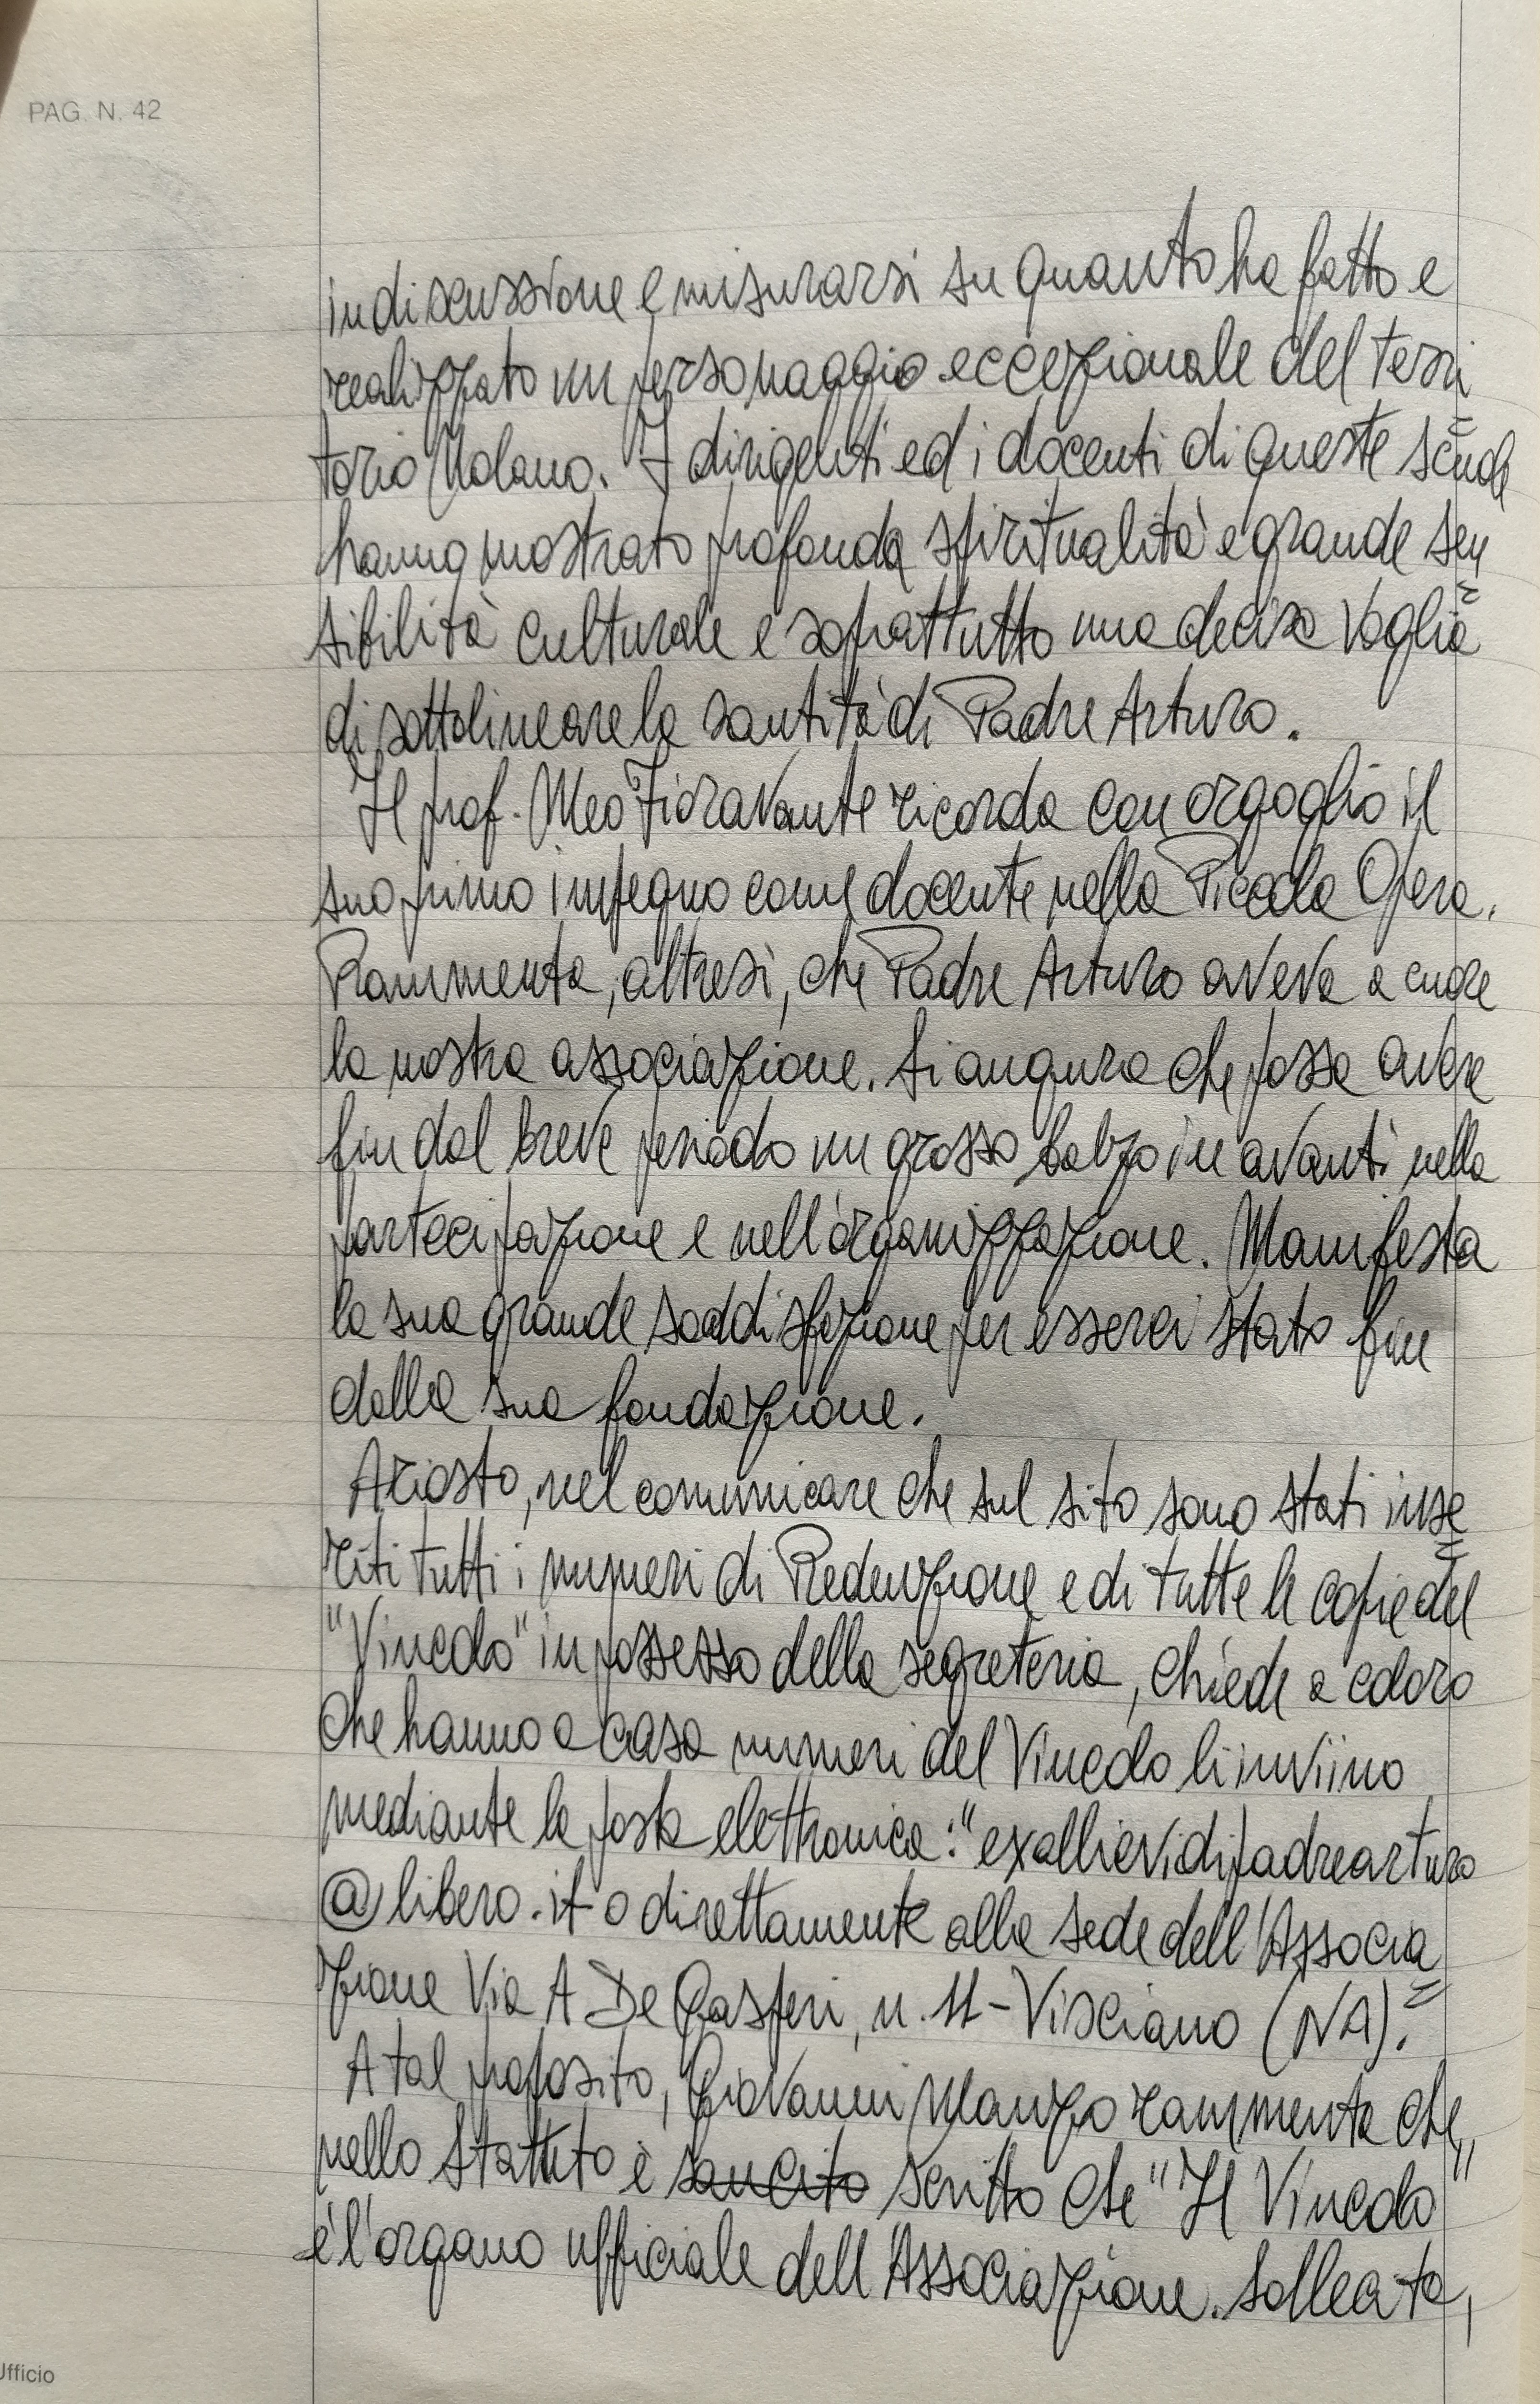 PAG. N. 42
in discussione e misurarsi su quanto ha fatto e
realizzato un personaggio eccezionale del terri
torio Nolano. I dirigenti ed i docenti di queste scuole
hanno mostrato profonda spiritualità e grande sen
sibilità culturale e soprattutto una decisa voglia
di sottolineare la santità di Padre Arturo.
Il prof. Meo Fioravante ricorda con orgoglio il
suo primo impegno come docente nella Piccola Opera.
Rammenta, altresì, che Padre Arturo aveva a cuore
la nostra associazione. Si augura che possa avere
fin dal breve periodo un grosso balzo in avanti nella
partecipazione e nell'organizzazione. Manifesta
la sua grande soddisfazione per esserci stato fin
dalla sua fondazione.
Ariosto, nel comunicare che sul sito sono stati inse=
riti tutti i numeri di Redenzione e di tutte le copie del
"Vincolo" in possesso della segreteria, chiede a coloro
che hanno a casa numeri del Vincolo li inviino
mediante la posta elettronica: "exallievidipadrearturo
@libero.it o direttamente alla sede dell'Associa=
zione Via A De Gasperi, n. 11 - Visciano (NA).
A tal proposito, Giovanni Manzo rammenta che,
nello Statuto è sancito scritto che "Il Vincolo"
è l'organo ufficiale dell'Associazione. Sollecita,
Ufficio